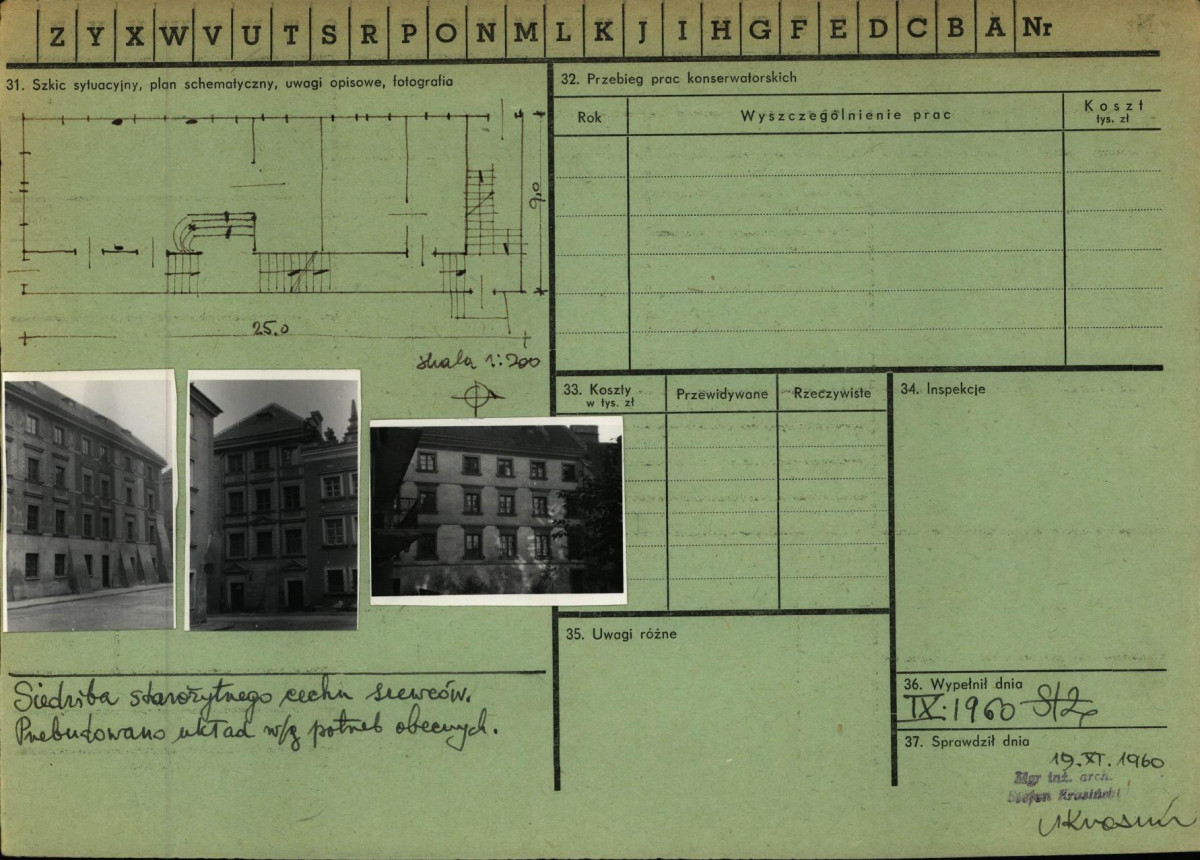 Z Y X W V U T S R P O N M L K J I H G F E D C B A Nr
31. Szkic sytuacyjny, plan schematyczny, uwagi opisowe, fotografia
9,0
25.0
skala 1:200
Siedziba starożytnego cechu szewców.
Przebudowano układ w/g potrzeb obecnych.
32. Przebieg prac konserwatorskich
Rok
Wyszczególnienie prac
Koszt
tys. zł
33. Koszty
w tys. zł
Przewidywane
Rzeczywiste
34. Inspekcje
35. Uwagi różne
36. Wypełnił dnia
IX.1960
37. Sprawdził dnia
19.XI.1960
Mgr inż. arch.
Stefan Krasiński